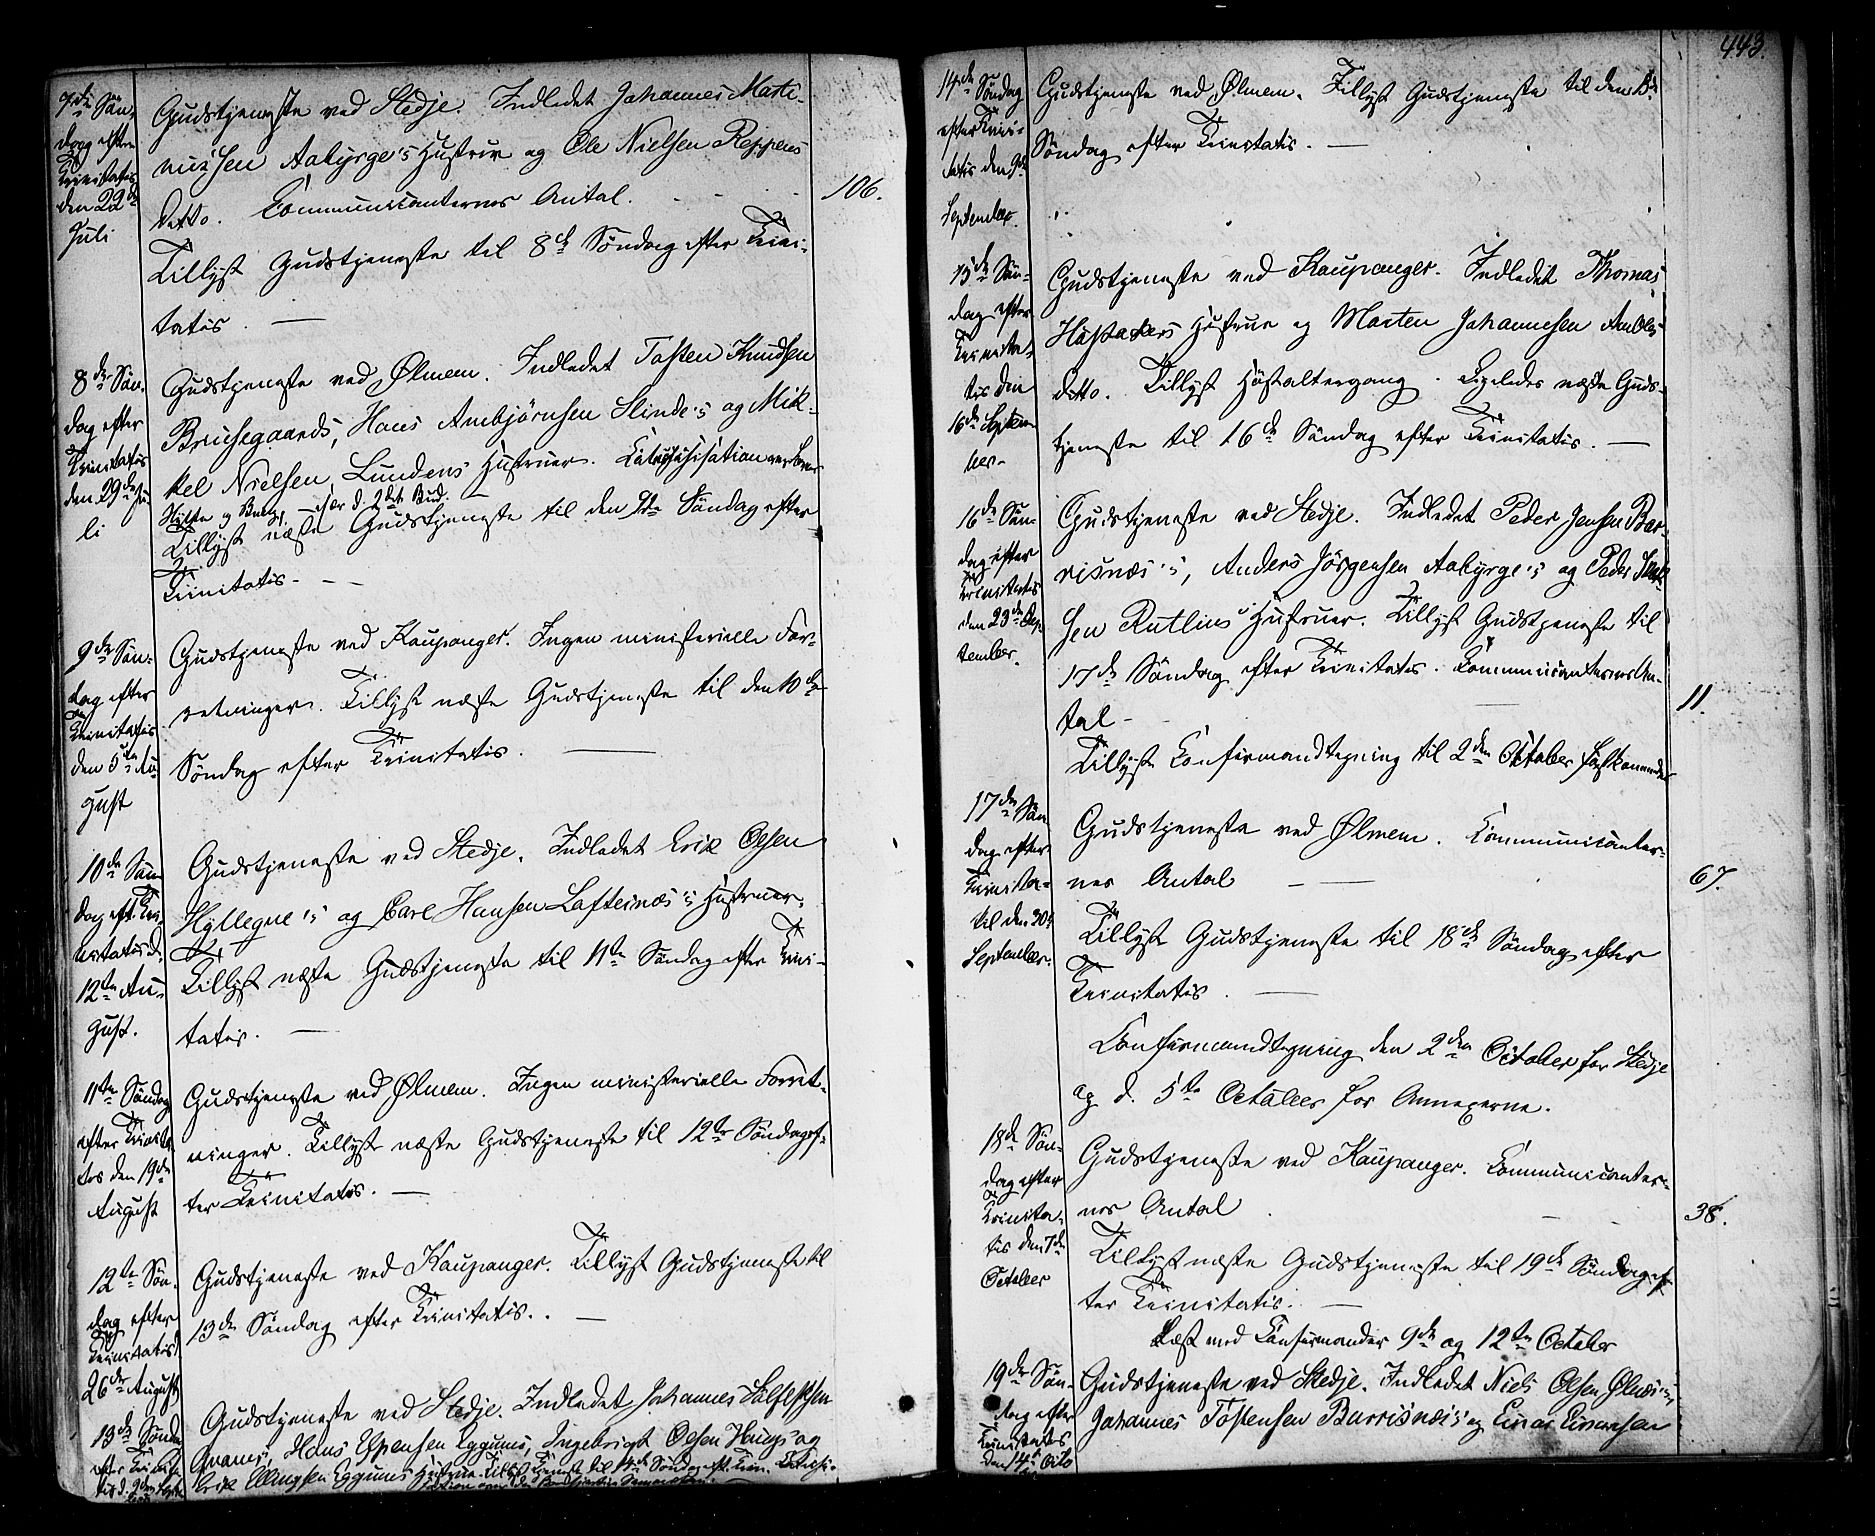 7de Søn-
dag efter
Trinitatis
den 22de
Juli
Gudstjeneste ved Stedje. Indledet Johannes Marti-
nussen Aabyrge's Hustrue og Ole Nielsen Reppens
Ditto. Communicanternes Antal. 106.
Tillyst Gudstjeneste til 8de Søndag efter Trini-
tatis.
8de Søn-
dag efter
Trinitatis
den 29de Ju-
li
Gudstjeneste ved Ølmem. Indledet Tosten Knudsen
Brusegaards, Hans Ambjørnsen Slinde's og Mik-
kel Nielsen Lundens Hustruer. Katechisation over
d. 2det Bud.
Tillyst næste Gudstjeneste til den 9de Søndag efter
Trinitatis.
9de Søn-
dag efter
Trinitatis
den 5te Au-
gust
Gudstjeneste ved Kaupanger. Ingen ministerielle For-
retninger. Tillyst næste Gudstjeneste til den 10de
Søndag efter Trinitatis.
10de Søn-
dag eft. Tri-
nitatis d.
12te Au-
gust.
Gudstjeneste ved Stedje. Indledet Erik Olsen
Hyllegne's og Carl Hansen Loftesnæs's Hustruer.
Tillyst næste Gudstjeneste til 11te Søndag efter Trini-
tatis.
11te Søndag
efter Trinita-
tis den 19de
August
Gudstjeneste ved Ølmem. Ingen ministerielle Forret-
ninger. Tillyst næste Gudstjeneste til 12te Søndag ef-
ter Trinitatis.
12te Søn-
dag efter
Trinitatis d.
26de August
Gudstjeneste ved Kaupanger. Tillyst Gudstjeneste til
13de Søndag efter Trinitatis.
13de Søndag
efter Trinita-
tis d. 2den
Gudstjeneste ved Stedje. Indledet Johannes
Hans Espensen Eggums, Ingebrigt Olsen Haugs og
Erik Ellingsen Eggums Hustruer. Tillyst Tjeneste til 14de Søndag eft. Trin.
443.
14de Søndag
efter Trini-
tatis den 9de
September.
Gudstjeneste ved Ølmem. Tillyst Gudstjeneste til den 15de
Søndag efter Trinitatis.
15de Søn-
dag efter
Trinita-
tis den
16de Septem-
ber.
Gudstjeneste ved Kaupanger. Indledet Thomas
Hustrue og Marten Johannesen Amble's
ditto. Tillyst Høstaltergang. Ligeledes næste Guds-
tjeneste til 16de Søndag efter Trinitatis.
16de Søn-
dag efter
Trinitatis
den 23de Sep-
tember.
Gudstjeneste ved Stedje. Indledet Peder Jensen Bar-
risnæs's, Anders Jørgensen Aabyrge's og Peder
sen Rutlins Hustruer. Tillyst Gudstjeneste til
17de Søndag efter Trinitatis. Communicanternes An-
tal 11.
Tillyst Confirmandtegning til 2den October førstkommende
17de Søn-
dag efter
Trinita-
tis den 30te
September.
Gudstjeneste ved Ølmem. Communicanter-
nes Antal 67.
Tillyst Gudstjeneste til 18de Søndag efter
Trinitatis.
Confirmandtegning den 2den October for Stedje
og d. 5te October for Annexerne.
18de Søn-
dag efter
Trinita-
tis den 7de
October
Gudstjeneste ved Kaupanger. Communicanter-
nes Antal 38.
Tillyst næste Gudstjeneste til 19de Søndag ef-
ter Trinitatis.
Læst med Confirmander 9de og 12te October
19de Søn-
dag efter
Trinitatis
den 14de Octo
Gudstjeneste ved Stedje. Indledet Niels Olsen Ølnæs's,
Johannes Tostensen Barrisnæs's og Einar Einarsen